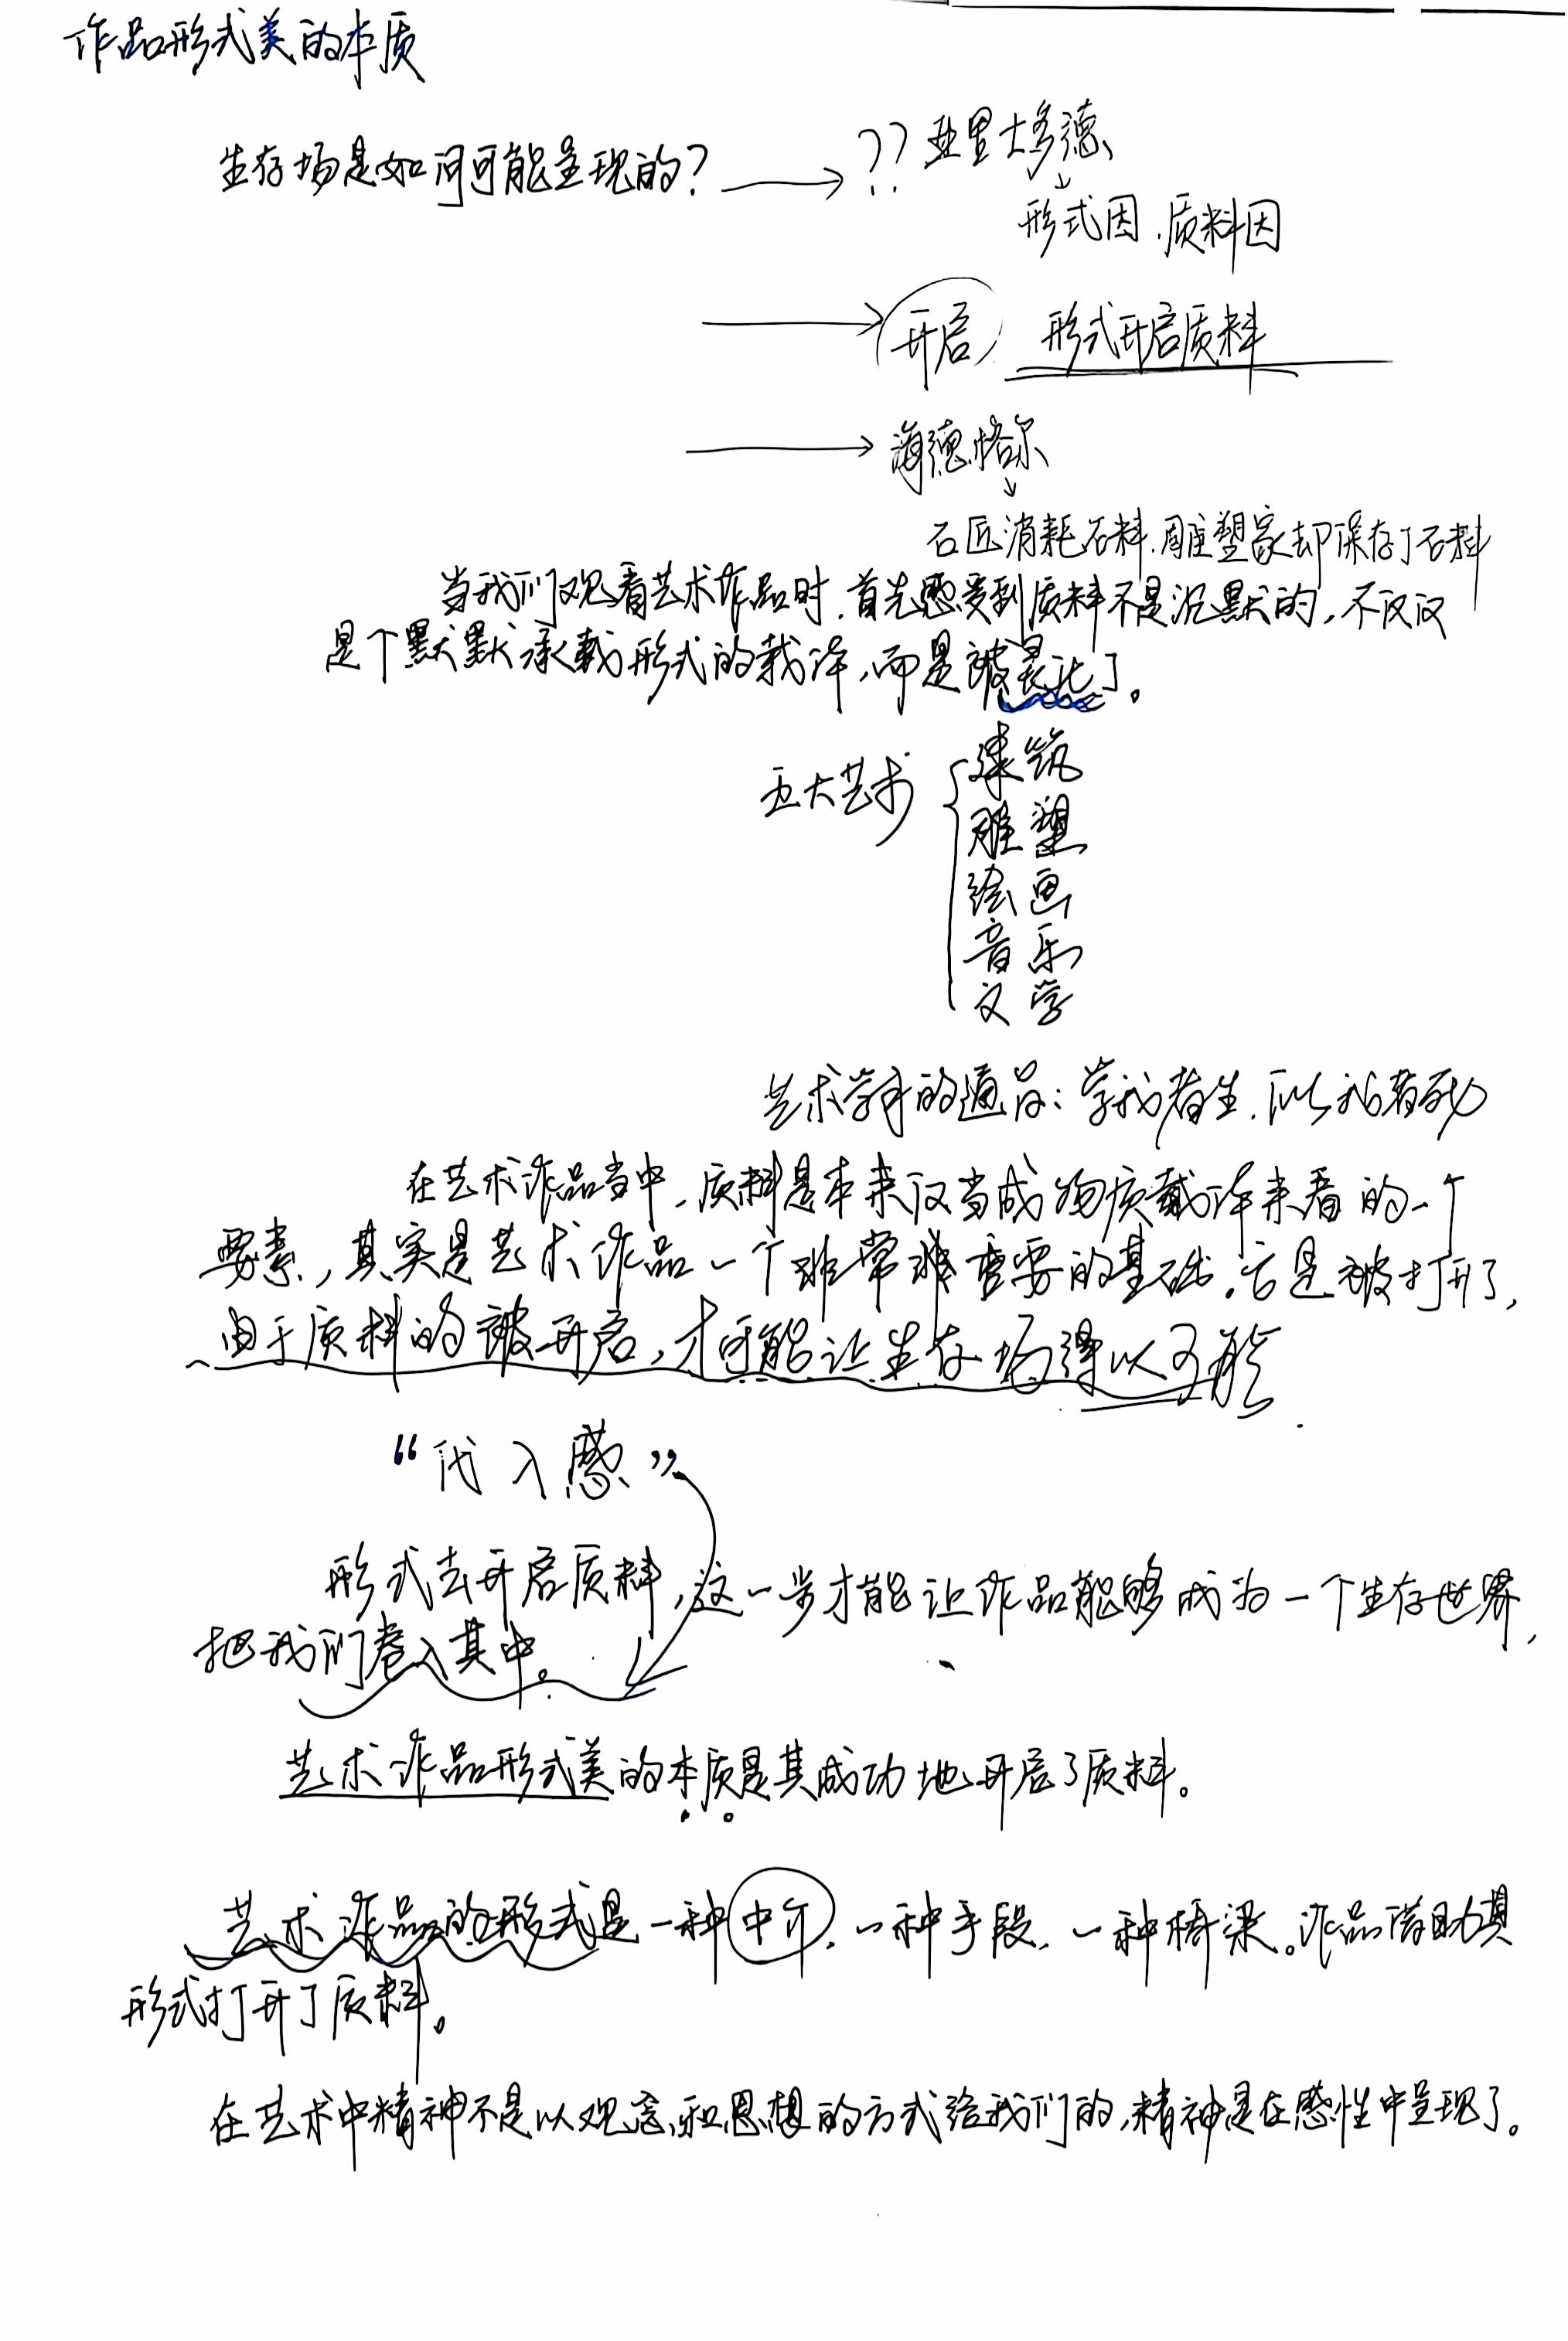 作品形式美的本质
生存场是如何可能呈现的? → ?? 亚里士多德
形式因、质料因
→ 开启 形式开启质料
→ 海德格尔
石匠消耗石料,雕塑家却保存了石料
当我们观看艺术作品时,首先感受到质料不是沉默的,不仅仅
是个默默承载形式的载体,而是被
了。
五大艺术
建筑
雕塑
绘画
音乐
文学
艺术学的通:学我者生,似我者死
在艺术作品当中,质料是本来仅当成物质载体来看的一个
要素,其实是艺术作品一个非常非常重要的基础。它是被打开了,
由于质料的被开启,才可能让生存场得以可能.
“代入感”
形式去开启质料,这一步才能让作品能够成为一个生存世界,
把我们卷入其中。
艺术作品形式美的本质是其成功地开启了质料。
艺术作品的形式是一种中介,一种手段,一种桥梁。作品借助其
形式打开了质料。
在艺术中精神不是以观念和思想的方式给我们的,精神是在感性中呈现了。